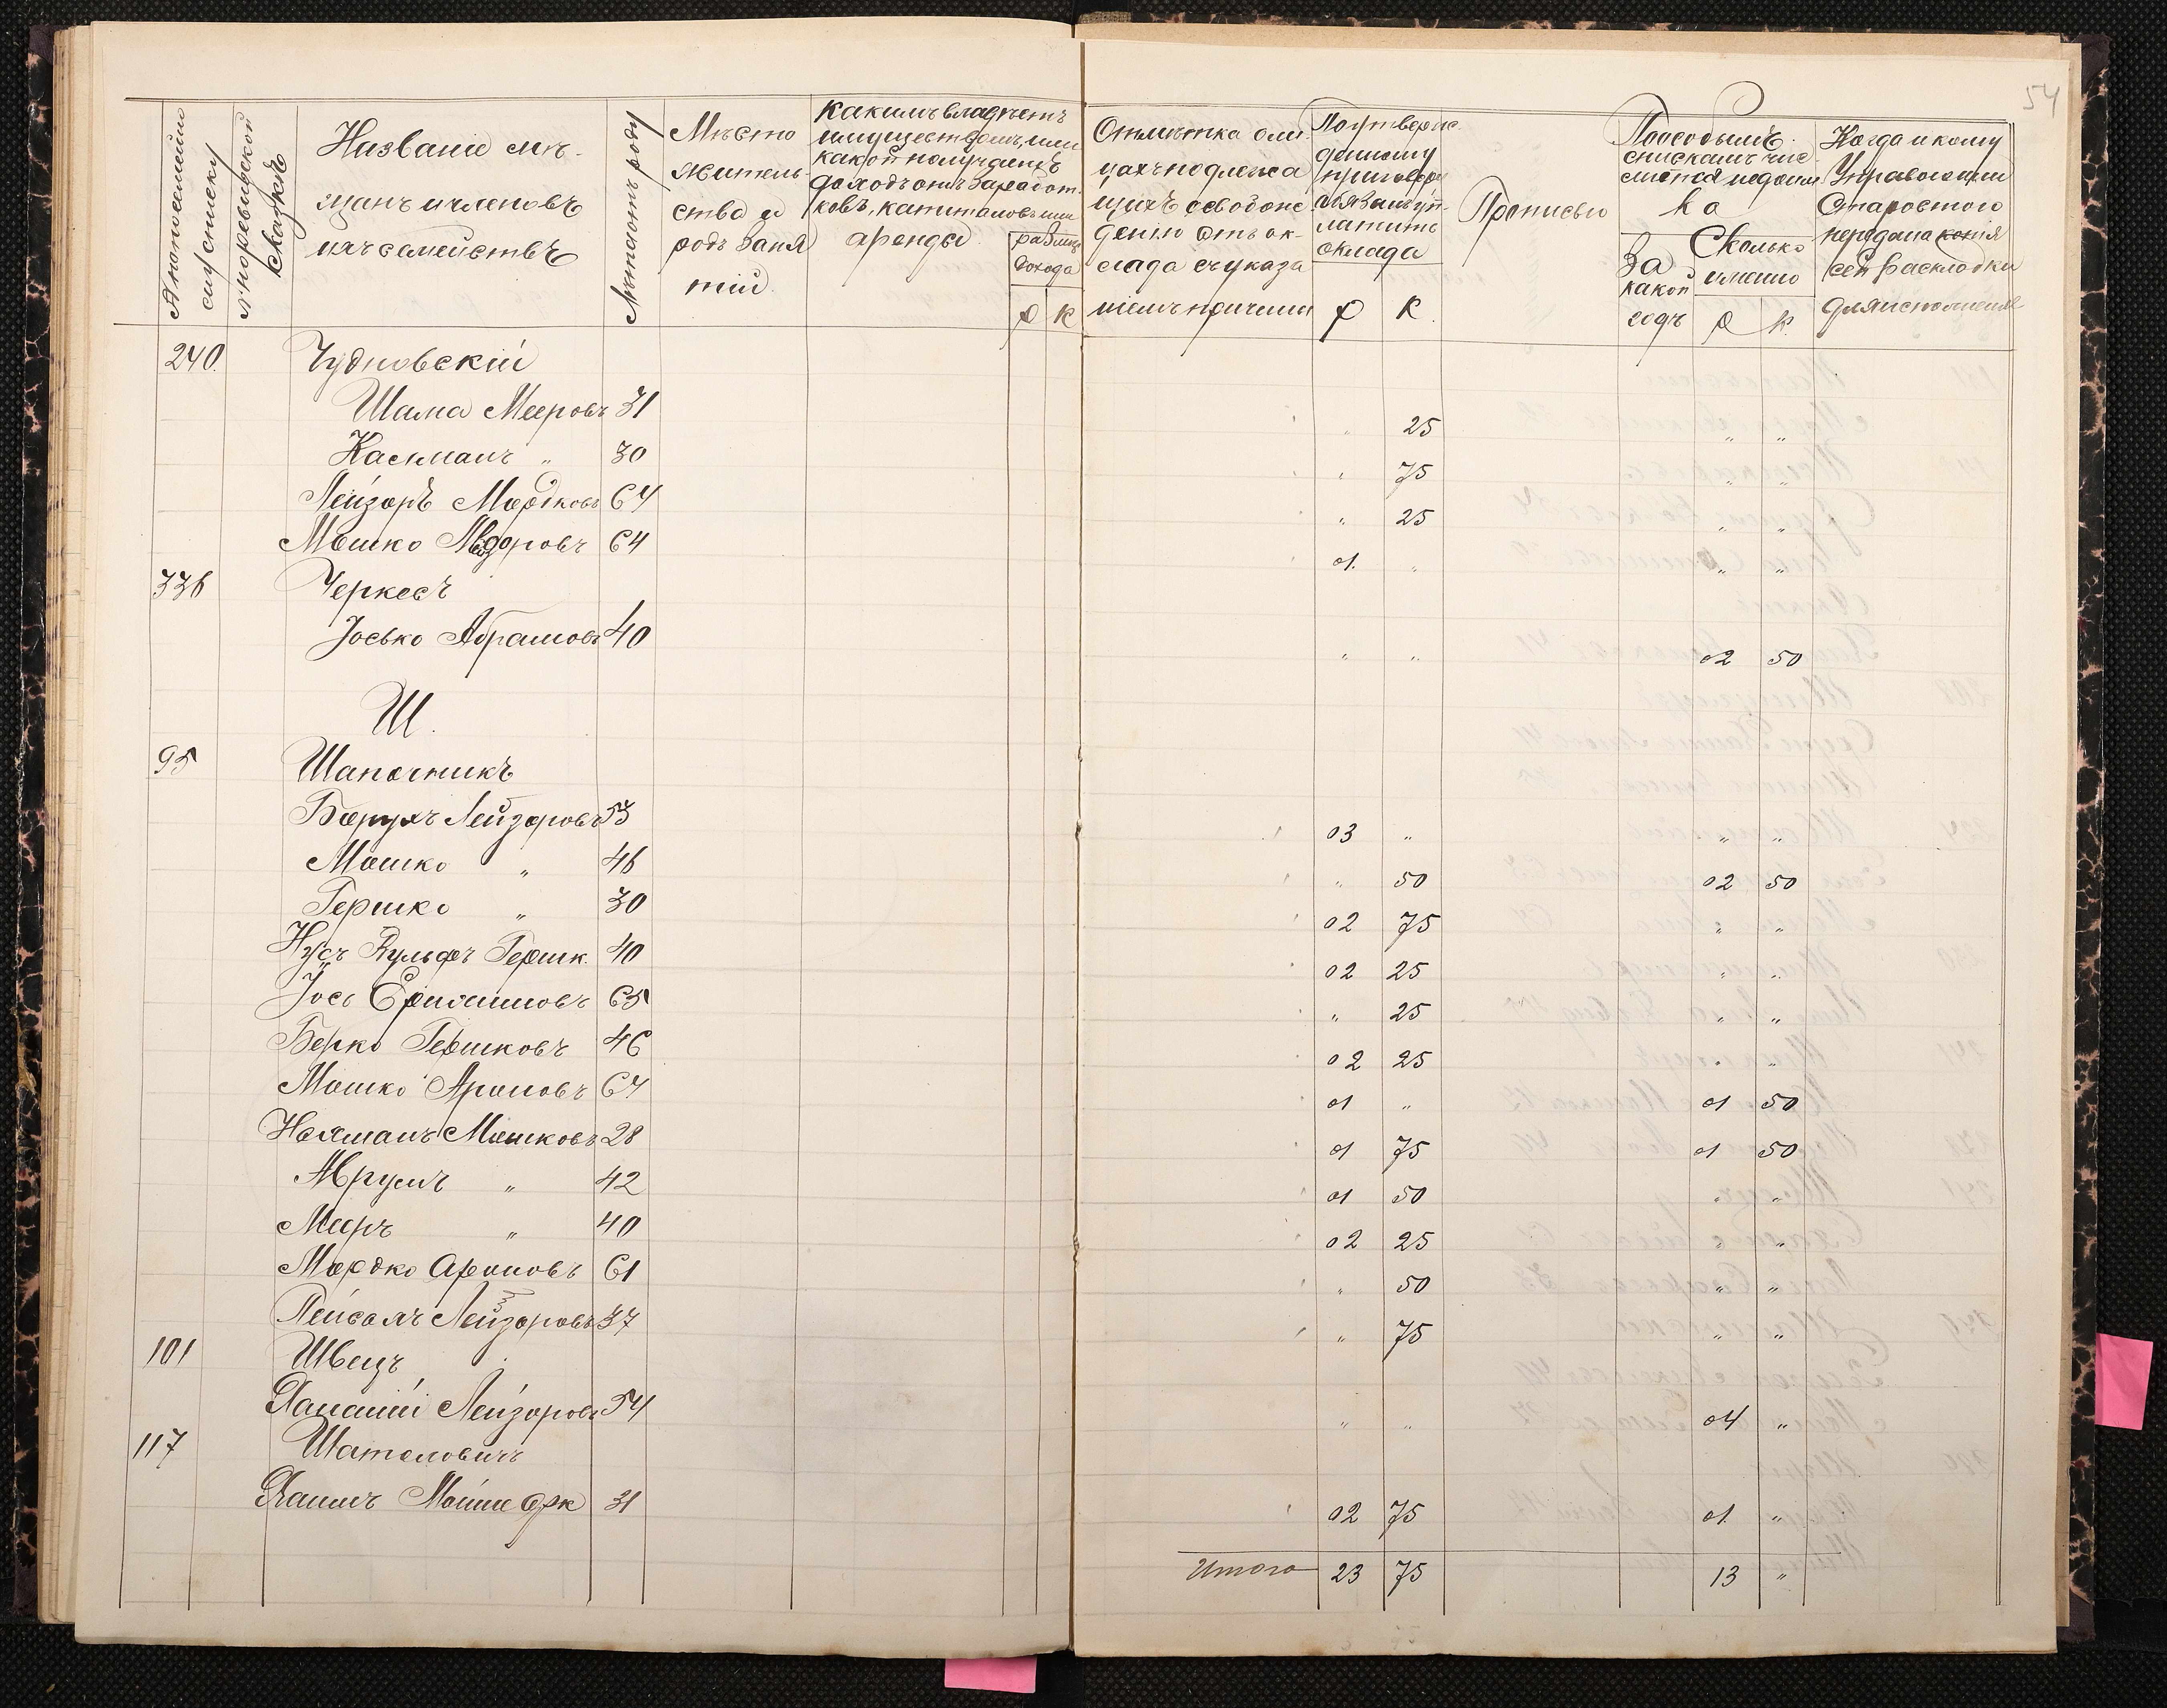 54
№ по семейному списку
№ по ревизской сказкѣ
Названіе мѣ-
щанъ и членовъ
ихъ семействъ
Лѣта отъ роду
Мѣсто
житель-
ства и
родъ заня
тій.
Какимъ владѣетъ
имуществомъ, или
какой получаетъ
доходъ отъ заработ.
ковъ, капиталовъ или
аренды
размѣръ
дохода
р к
Отмѣтка о ли-
цахъ подлежа
щихъ освобож-
денію отъ ок-
лада съ указа
ніемъ причины
По утверж-
денному
приговору
обязанъ уп-
латить
оклада
р к.
Прописью
По особымъ
спискамъ чис-
лится недоим
ка
За
какой
годъ
Сколько
именно
р к.
Когда и кому
Управляющим
Старостою
передана копія
сей раскладки
для исполненія
240. Чудновскій
Шама Мееровъ 31 " 25 " "
Касманъ " 30 " 75 " "
Лейзоръ Мордковъ 64 " 25 " "
Мошко 64 01. " " "
336 Черкесъ
Іосько Абрамовъ 40 " " 02 50
Ш.
95 Шапочникъ
Борухъ Лейзоровъ 53 03 " " "
Мошко " 46 " 50 02 50
Гершко " 30 02 75 " "
Нусъ Вульфъ Гершк. 40 02 25 " "
Іось 65 " 25 " "
Берко Гершковъ 46 02 25 " "
Мошко Ароновъ 64 01 " 01 50
Нахманъ Мошковъ 28 01 75 01 50
Аврумъ " 42 01 50 " "
Мееръ " 40 02 25 " "
Мордко Ароновъ 61 " 50 " "
Пейсахъ Лейзоровъ 37 " 75 " "
101 Швецъ
Хананій Лейзоровъ 54 " " 04 "
117 Шатоловичъ
Хаимъ 31 02 75 01. "
Итого 23 75 13 "